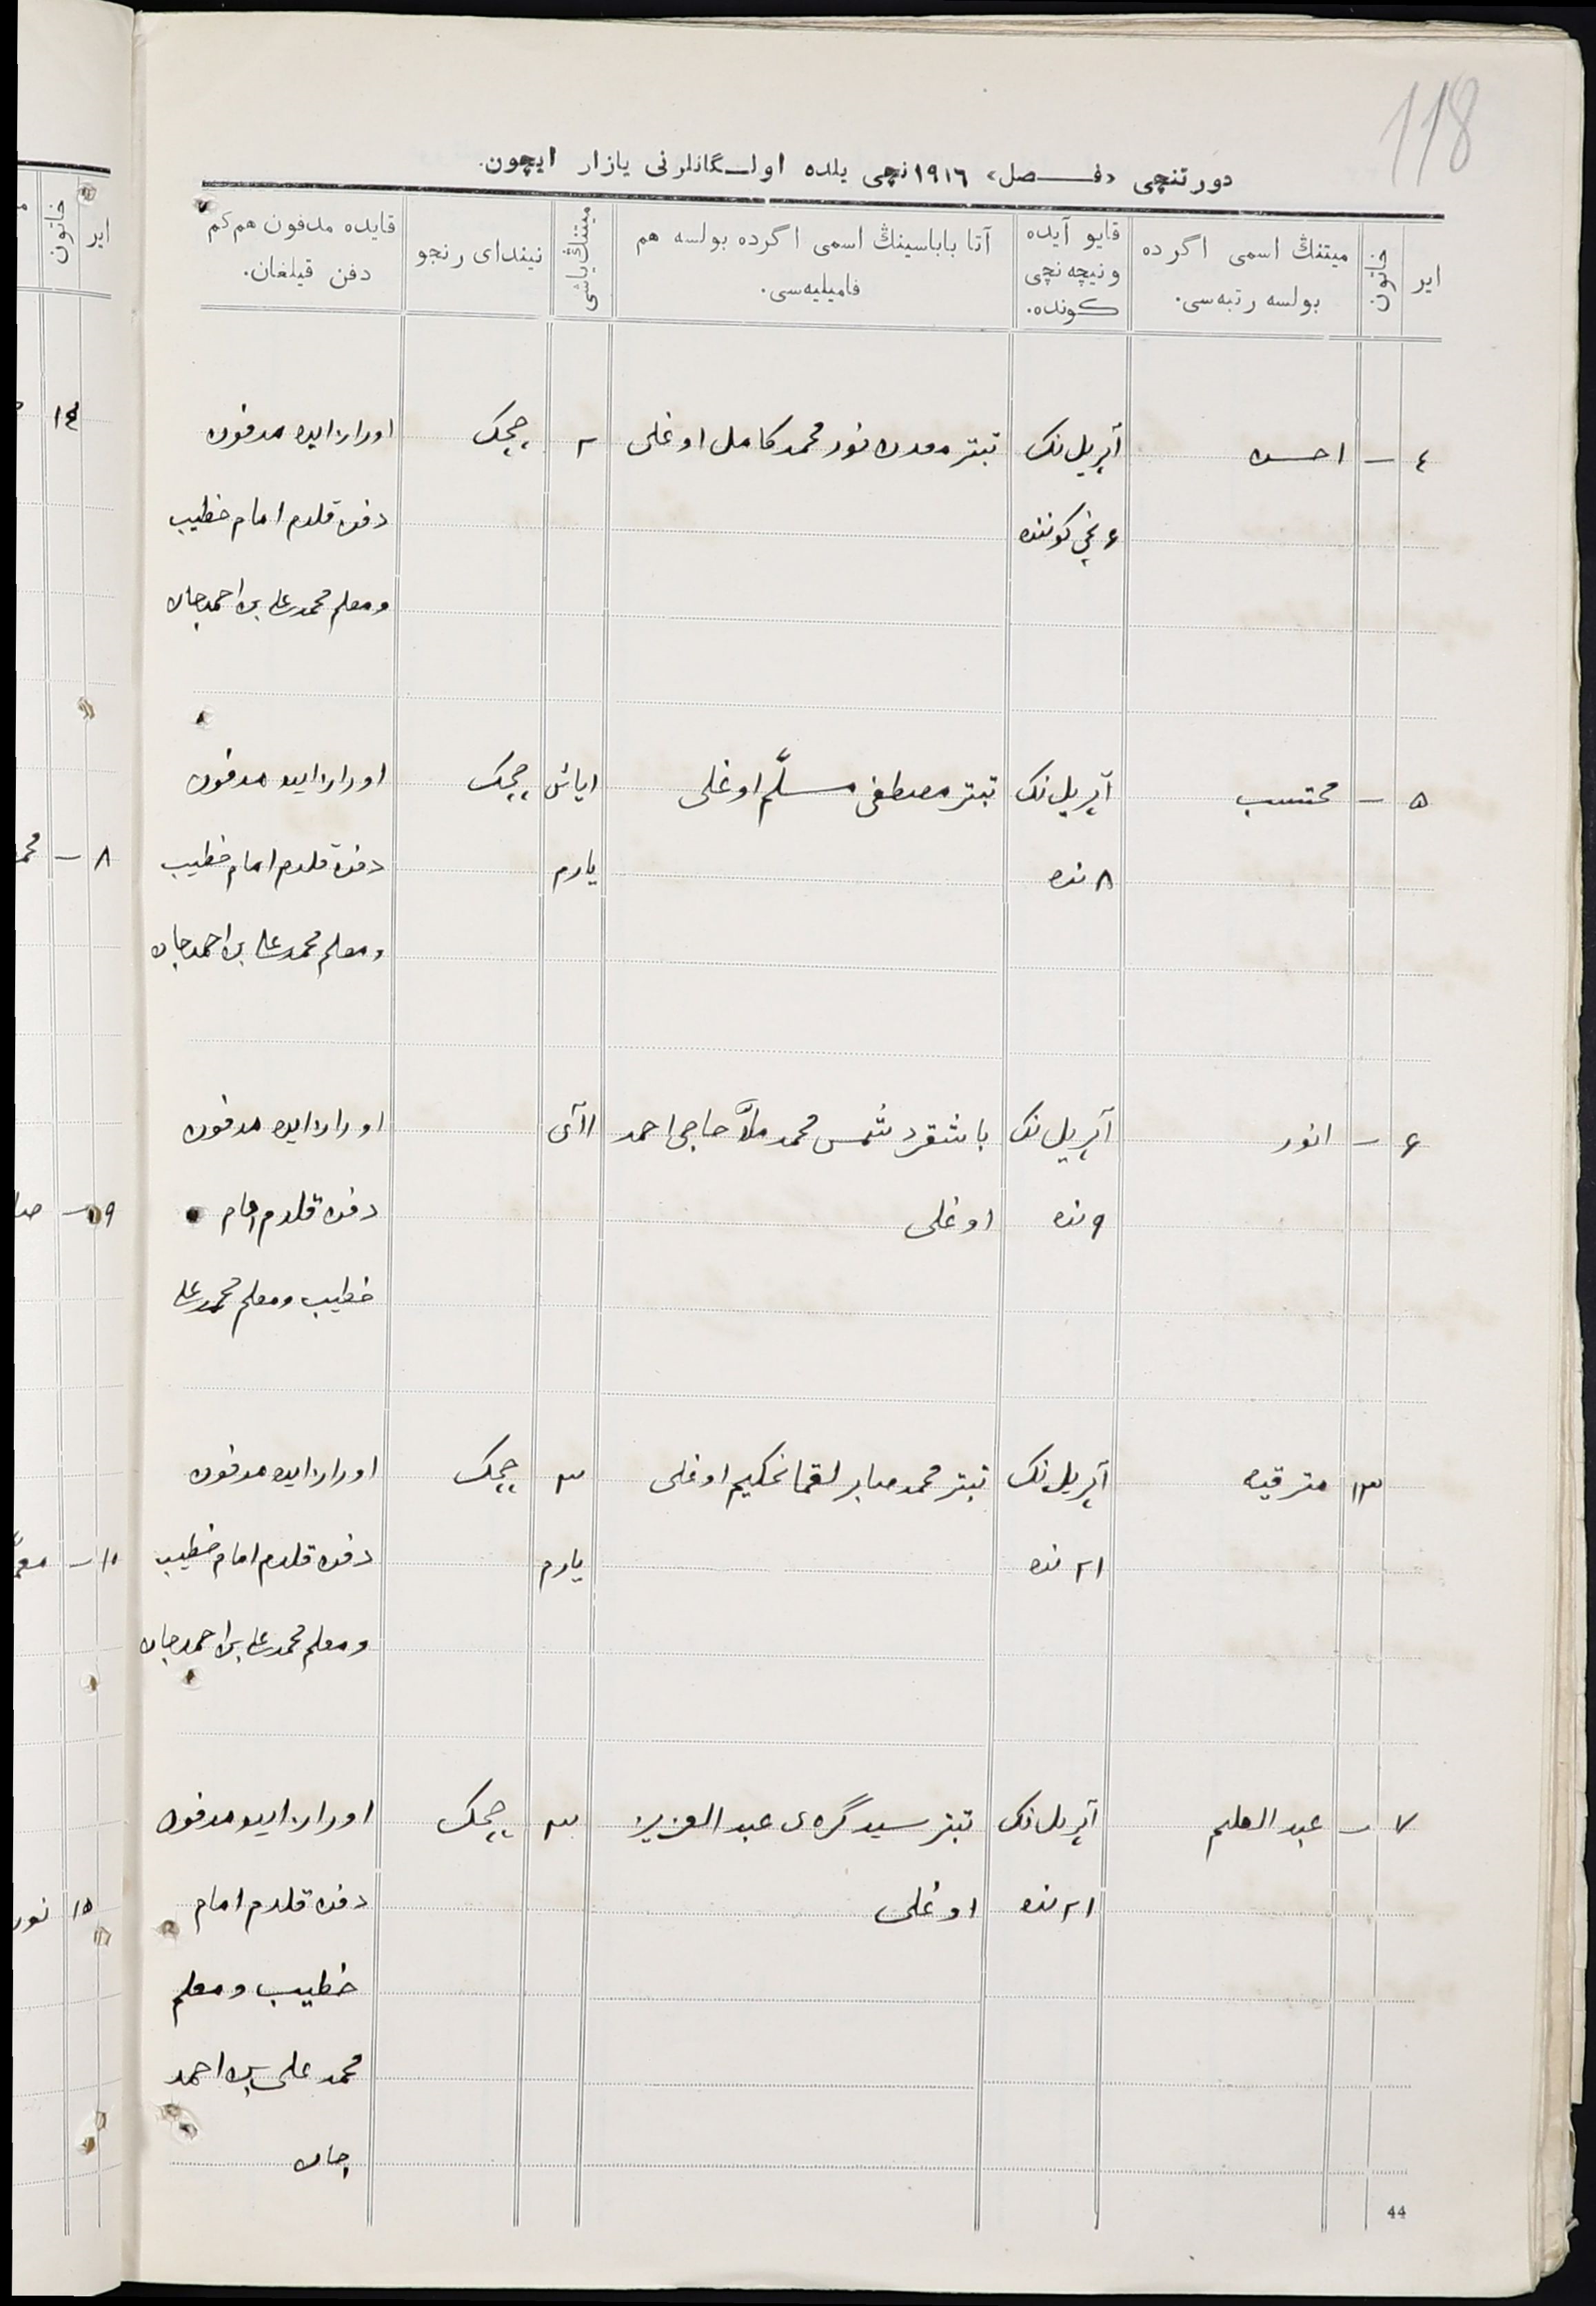 118
دورتنچی «فصل» ١٩١٦نچی یلده اولگانلرنی یازار ایچون.
ایر
خاتون
میتنڭ اسمی اگرده
بولسه رتبه‌سی.
قایو آیده
ونیچه‌نچی
کونده.
آتا باباسینڭ اسمی اگرده بولسه هم
فامیلیه‌سی.
میتنڭ یاشی
نیندای رنجو
قایده مدفون هم کم
دفن قیلغان.
٤ – احسن آپریل‌نک تبتر نور محمد کامل اوغلی ٢ چچک اورازایده مدفون
۶نچی کوننده دفن قلدم امام خطیب
ومعلم محمدعلی بن احمدجان
۵ – محتسب آپریل‌نک تبتر مصطفی مسلّم اوغلی ١یاش چچک اورازایده مدفون
٨نده یارم دفن قلدم امام خطیب
ومعلم محمدعلی بن احمدجان
۶ – انور آپریل‌نک باشقرد شمس محمد ملّا حاجی احمد ١آی اورازایده مدفون
٩نده اوغلی دفن قلدم امام
خطیب ومعلم محمدعلی
١٣ مترقیه آپریل‌نک تبتر محمد صابر لقمانحکیم اوغلی ٣ چچک اورازایده مدفون
٢١نده یارم دفن قلدم امام خطیب
ومعلم محمدعلی بن احمدجان
٧ – عبد العلیم آپریل‌نک تبتر سیدگره‌ی عبد العزیز ٣ چچک اورازایده مدفون
٢١نده اوغلی دفن قلدم امام
خطیب ومعلم
محمد علی بن احمد
جان
44
ایر
خاتون
١٤
٨ –
٩ –
١٠ –
١۵ نور